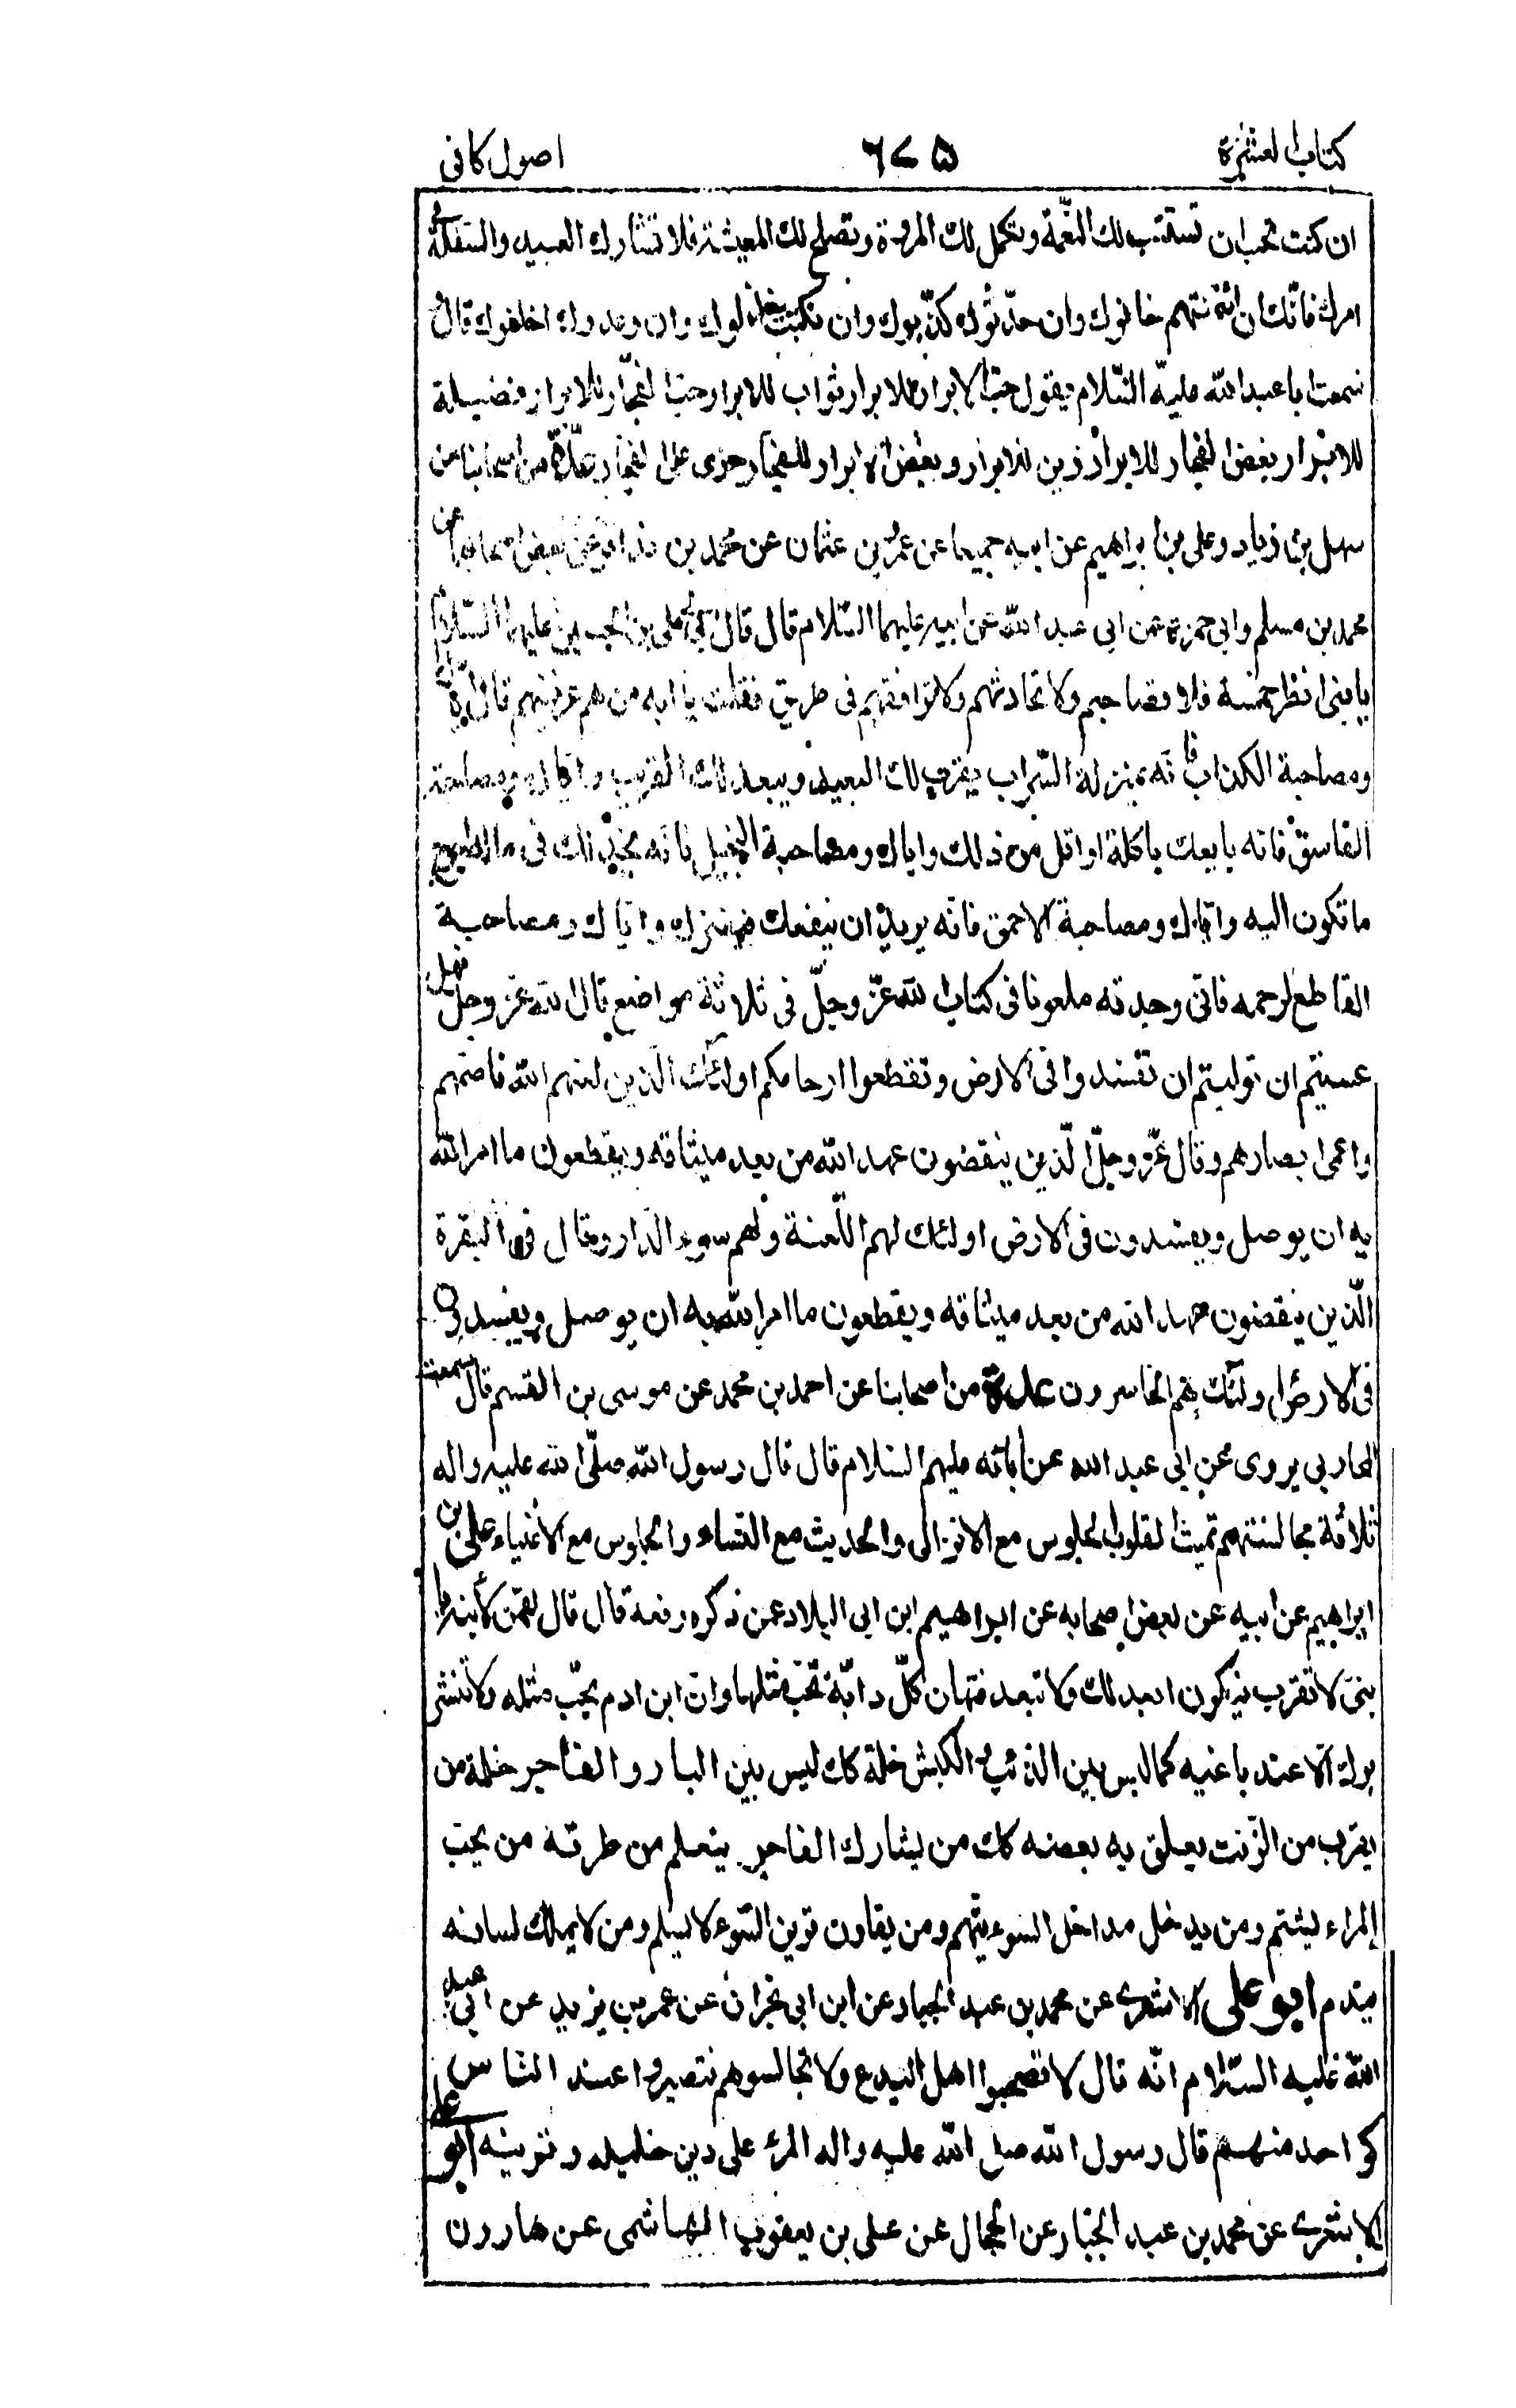 كتاب العشرة ٦٧٥ اصول كافى
ان كنت تحب ان تستتب لك النعمة وتكمل لك المروة وتصلح لك المعيشة فلا تشارك العبيد والسفلة فى
امرك فانك ان ائتمنتهم خانوك وان حدثوك كذبوك وان نكبت خذلوك وان وعدوك اخلفوك قال
سمعت ابا عبد الله عليه السلام يقول حب الابرار للابرار ثواب للابرار وحب الفجار للابرار فضيلة
للابرار وبغض الفجار للابرار زين للابرار وبغض الابرار للفجار خزى على الفجار عدّة من اصحابنا عن
سهل بن زياد وعلى بن ابراهيم عن ابيه جميعا عن عمرو بن عثمان عن محمد بن عذافر عن بعض اصحابنا عن
محمد بن مسلم وابى حمزة عن ابى عبد الله عن ابيه عليهما السلام قال قال لى على بن الحسين عليهما السلام
يا بنى انظر خمسة فلا تصاحبهم ولا تحادثهم ولا ترافقهم فى طريق فقلت يا ابه من هم عرفنيهم قال اياك
ومصاحبة الكذاب فانه بمنزلة السراب يقرب لك البعيد ويبعد لك القريب واياك ومصاحبة
الفاسق فانه بايعك باكلة او اقل من ذلك واياك ومصاحبة البخيل فانه يخذلك فى ماله احوج
ما تكون اليه واياك ومصاحبة الاحمق فانه يريد ان ينفعك فيضرك واياك ومصاحبة
القاطع لرحمه فانى وجدته ملعونا فى كتاب الله عزّ وجلّ فى ثلاثة مواضع قال الله عز وجل فهل
عسيتم ان توليتم ان تفسدوا فى الارض وتقطعوا ارحامكم اولئك الذين لعنهم الله فاصمهم
واعمى ابصارهم وقال عزّ وجلّ الّذين ينقضون عهد الله من بعد ميثاقه ويقطعون ما امر الله
به ان يوصل ويفسدون فى الارض اولئك لهم اللّعنة ولهم سوء الدار وقال فى البقرة
الّذين ينقضون عهد الله من بعد ميثاقه ويقطعون ما امر الله به ان يوصل ويفسدون
فى الارض اولئك هم الخاسرون عدة من اصحابنا عن احمد بن محمد عن موسى بن القسم قال سمعت
المحاربى يروى عن ابى عبد الله عن ابائه عليهم السلام قال قال رسول الله صلّى الله عليه واله
ثلاثة مجالستهم تميت القلوب الجلوس مع الانذال والحديث مع النساء والجلوس مع الاغنياء على بن
ابراهيم عن ابيه عن بعض اصحابه عن ابراهيم ابن ابى البلاد عمن ذكره رفعه قال قال لقمن لابنه يا
بنى لا تقرب فيكون ابعد لك ولا تبعد فتهان كلّ دابّة تحبّ مثلها وان ابن ادم يحبّ مثله ولا تنشر
بزك الا عند باغيه كما ليس بين الذئب والكبش خلة كك ليس بين البار والفاجر خلة من
يقرب من الزّفت يعلق به بعضه كك من يشارك الفاجر يتعلم من طرقه من يحبّ
المراء يشتم ومن يدخل مداخل السوء يتهم ومن يقارن قرين السّوء لا يسلم ومن لا يملك لسانه
يندم ابو على الاشعرى عن محمد بن عبد الجبار عن ابن ابى نجران عن عمر بن يزيد عن ابى عبد
الله عليه السّلام انّه قال لا تصحبوا اهل البدع ولا تجالسوهم فتصيروا عند الناس
كواحد منهم قال رسول الله صلى الله عليه واله المرء على دين خليله وقرينه ابو على
الاشعرى عن محمد بن عبد الجبّار عن الحجال عن على بن يعقوب الهاشمى عن هارون